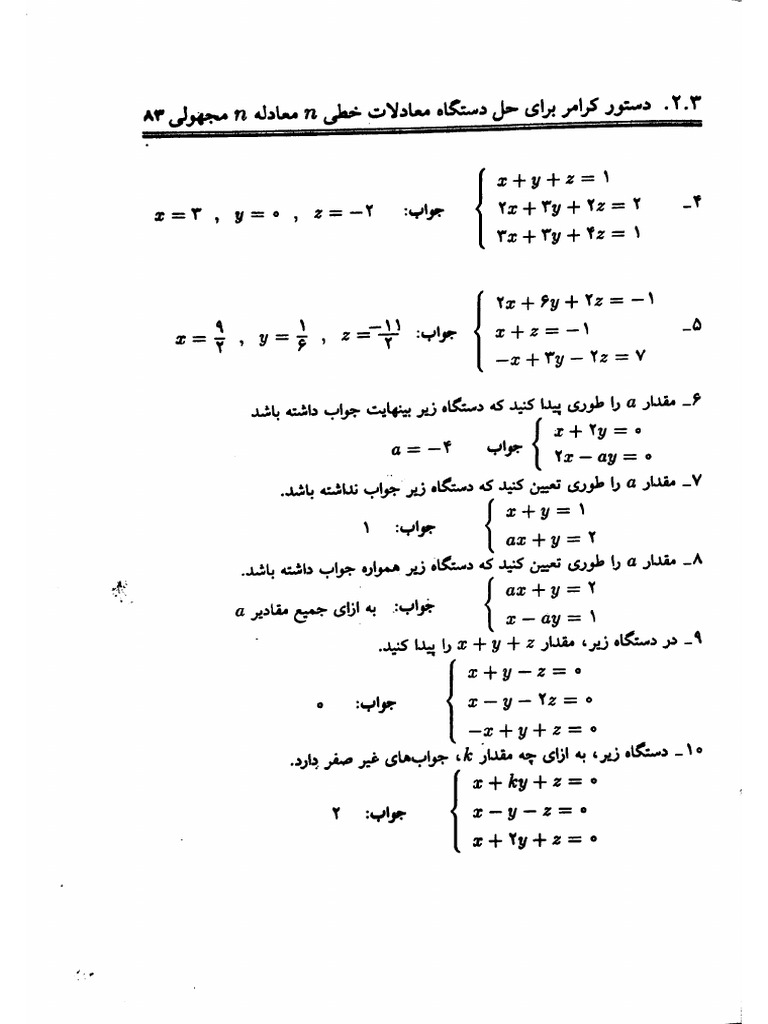 ۲.۳. دستور کرامر برای حل دستگاه معادلات خطی n معادله n مجهولی ۸۳
۴_ { x + y + z = ۱
۲x + ۳y + ۲z = ۲ جواب: x = ۳ , y = ۰ , z = −۲
۳x + ۳y + ۴z = ۱
۵_ { ۲x + ۶y + ۲z = −۱
x + z = −۱ جواب: x = ۹/۲ , y = ۱/۶ , z = −۱۱/۲
−x + ۳y − ۲z = ۷
۶_ مقدار a را طوری پیدا کنید که دستگاه زیر بینهایت جواب داشته باشد
{ x + ۲y = ۰
۲x − ay = ۰ جواب a = −۴
۷_ مقدار a را طوری تعیین کنید که دستگاه زیر جواب نداشته باشد.
{ x + y = ۱
ax + y = ۲ جواب: ۱
۸_ مقدار a را طوری تعیین کنید که دستگاه زیر همواره جواب داشته باشد.
{ ax + y = ۲
x − ay = ۱ جواب: به ازای جمیع مقادیر a
۹_ در دستگاه زیر، مقدار x + y + z را پیدا کنید.
{ x + y − z = ۰
x − y − ۲z = ۰ جواب: ۰
−x + y + z = ۰
۱۰_ دستگاه زیر، به ازای چه مقدار k، جواب‌های غیر صفر دارد.
{ x + ky + z = ۰
x − y − z = ۰ جواب: ۲
x + ۲y + z = ۰